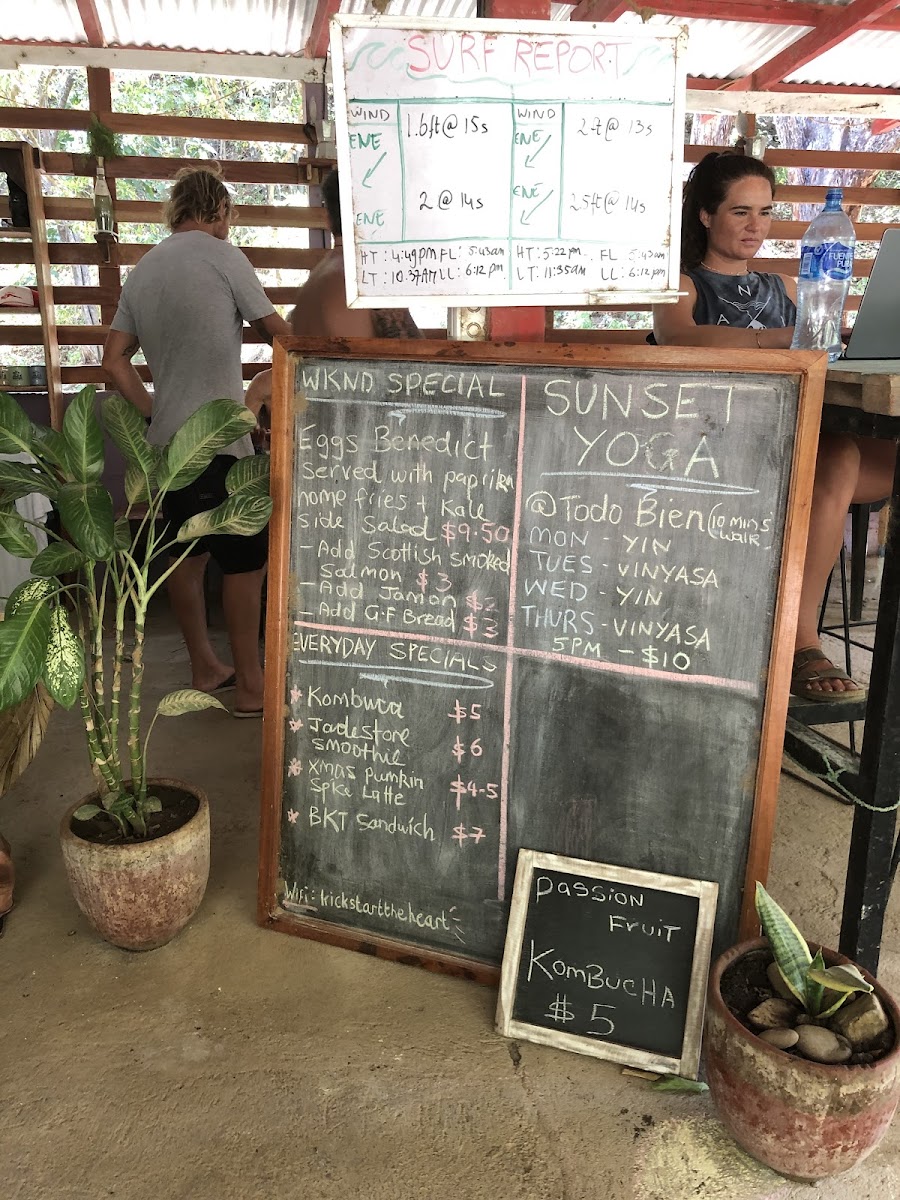 SURF REPORT
WIND 1.6ft @ 15s WIND 2ft @ 13s
ENE ENE
2 @ 14s 2.5ft @ 14s
ENE ENE
HT: 4:49PM FL: 5:43am HT: 5:22pm FL: 5:43am
LT: 10:37AM LL: 6:12pm LT: 11:35AM LL: 6:12pm
FUENTE PURA
WKND SPECIAL
Eggs Benedict
Served with paprika
home fries + Kale
side salad $9.50
- Add Scottish Smoked
Salmon $3
- Add Jamon $2
- Add G-F Bread $3
SUNSET
YOGA
@Todo Bien (10 MINS
WALK)
MON - YIN
TUES - VINYASA
WED - YIN
THURS - VINYASA
5PM - $10
EVERYDAY SPECIALS
* Kombuca $5
* Jadestore
smoothie $6
* Xmas pumkin
Spice Latte $4-5
* BKT Sandwich $7
Wifi: kickstarttheheart
PASSION
FRUIT
KOMBUCHA
$5